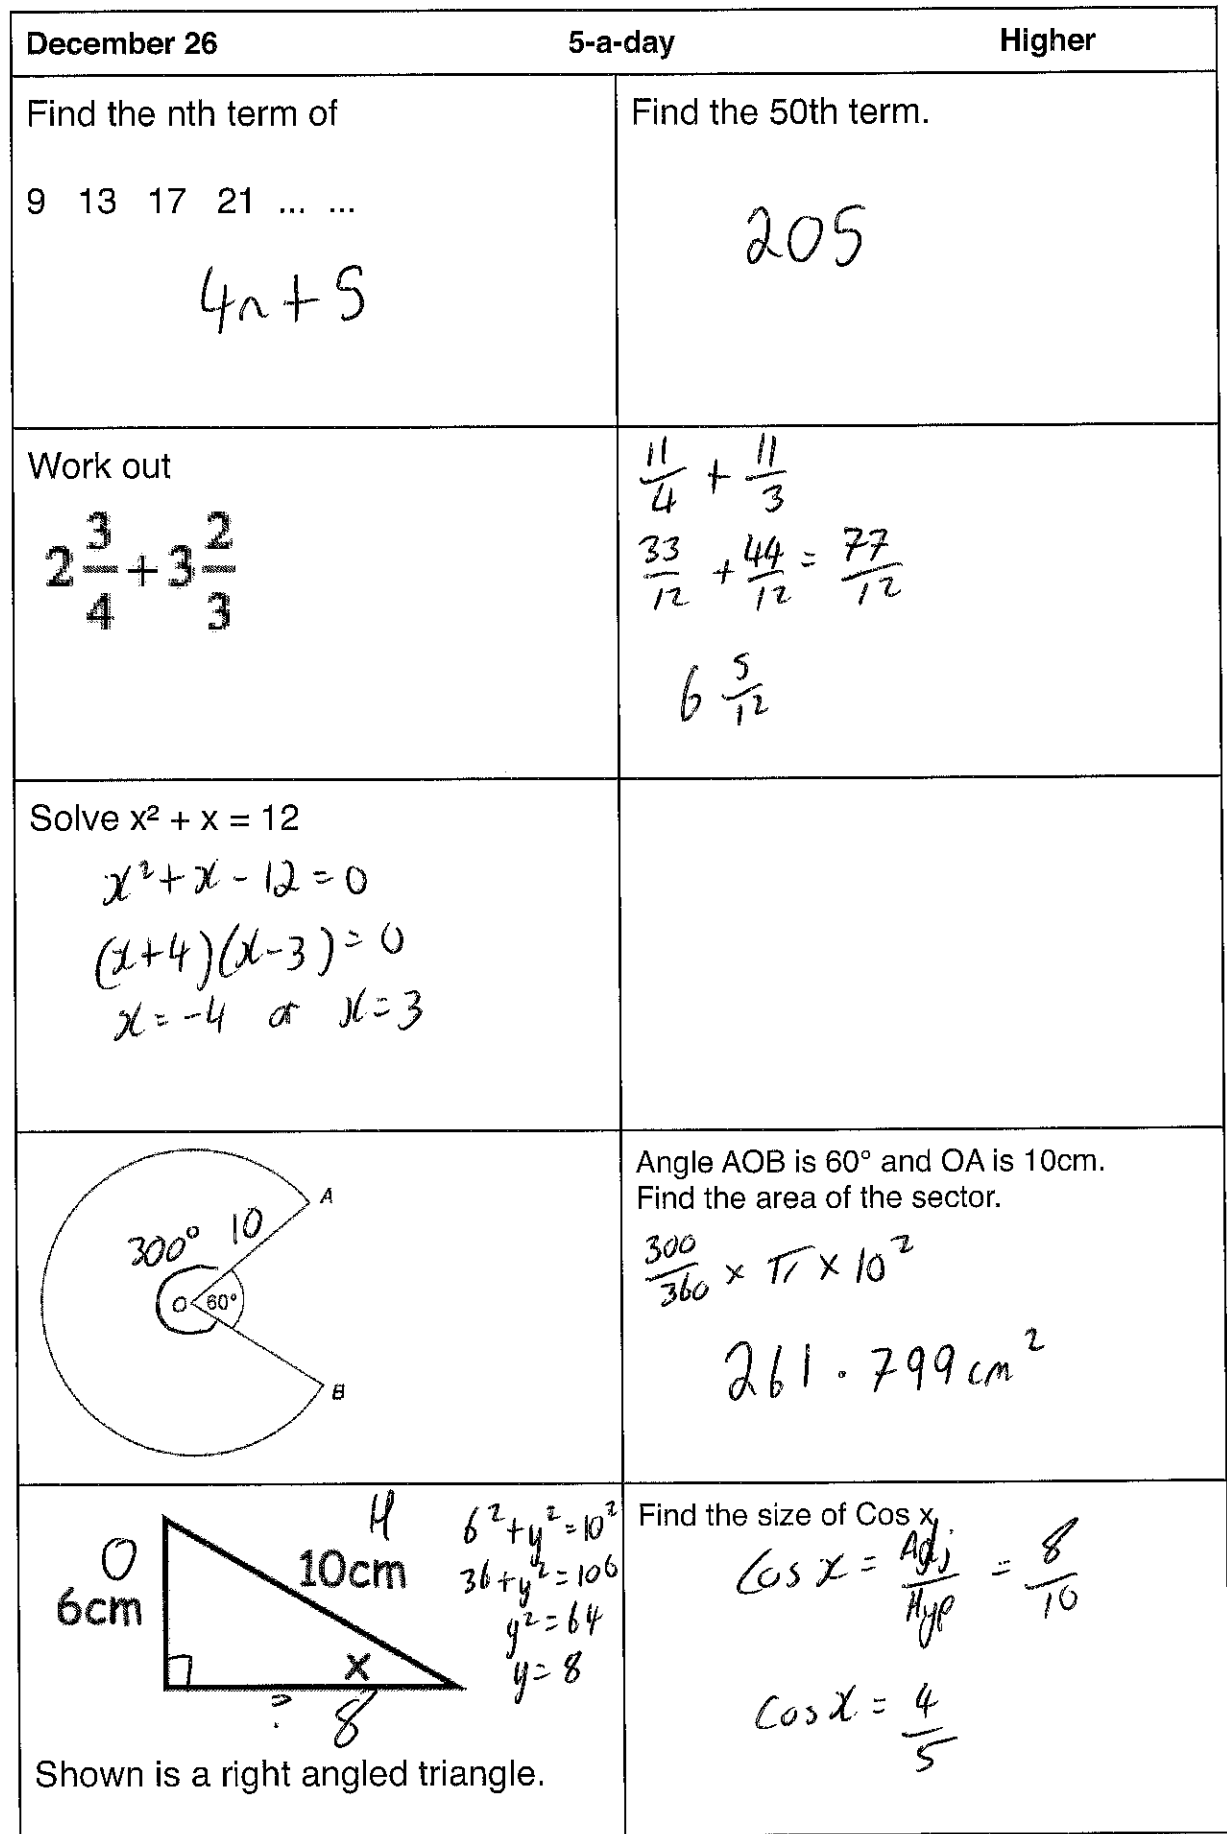 December 26 5-a-day Higher
Find the nth term of
9 13 17 21 ... ...
4n + 5
Find the 50th term.
205
Work out
2 3/4 + 3 2/3
11/4 + 11/3
33/12 + 44/12 = 77/12
6 5/12
Solve x² + x = 12
x² + x - 12 = 0
(x+4)(x-3) = 0
x = -4 or x = 3
A
300° 10
O 60°
B
Angle AOB is 60° and OA is 10cm.
Find the area of the sector.
300/360 × π × 10²
261.799 cm²
O
6cm
H
10cm
x
? 8
6² + y² = 10²
36 + y² = 100
y² = 64
y = 8
Shown is a right angled triangle.
Find the size of Cos x
Cos x = Adj/Hyp = 8/10
Cos x = 4/5